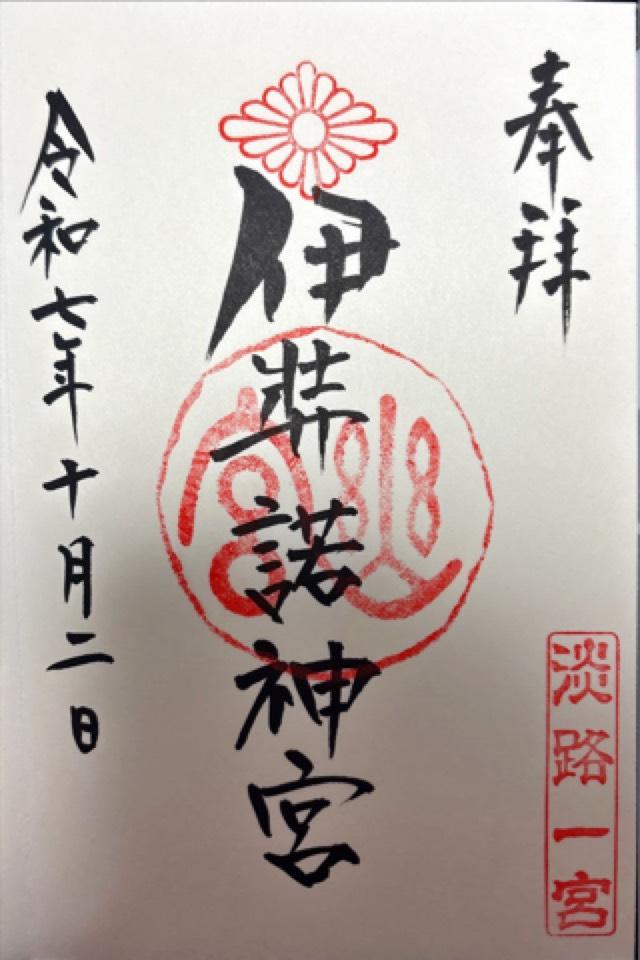 奉拝
淡路一宮
伊弉諾神宮
幽宮
令和七年十月二日